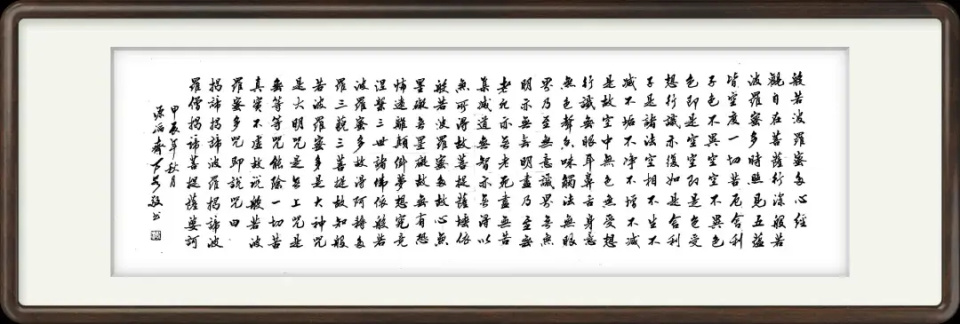 般若波羅蜜多心經
觀自在菩薩行深般若
波羅蜜多時照見五蘊
皆空度一切苦厄舍利
子色不異空空不異色
色即是空空即是色受
想行識亦復如是舍利
子是諸法空相不生不
滅不垢不淨不增不減
是故空中無色無受想
行識無眼耳鼻舌身意
無色聲香味觸法無眼
界乃至無意識界無無
明亦無無明盡乃至無
老死亦無老死盡無苦
集滅道無智亦無得以
無所得故菩提薩埵依
般若波羅蜜多故心無
罣礙無罣礙故無有恐
怖遠離顛倒夢想究竟
涅槃三世諸佛依般若
波羅蜜多故得阿耨多
羅三藐三菩提故知般
若波羅蜜多是大神咒
是大明咒是無上咒是
無等等咒能除一切苦
真實不虛故說般若波
羅蜜多咒即說咒曰
揭諦揭諦波羅揭諦波
羅僧揭諦菩提薩婆訶
甲辰年秋月
齋敬書